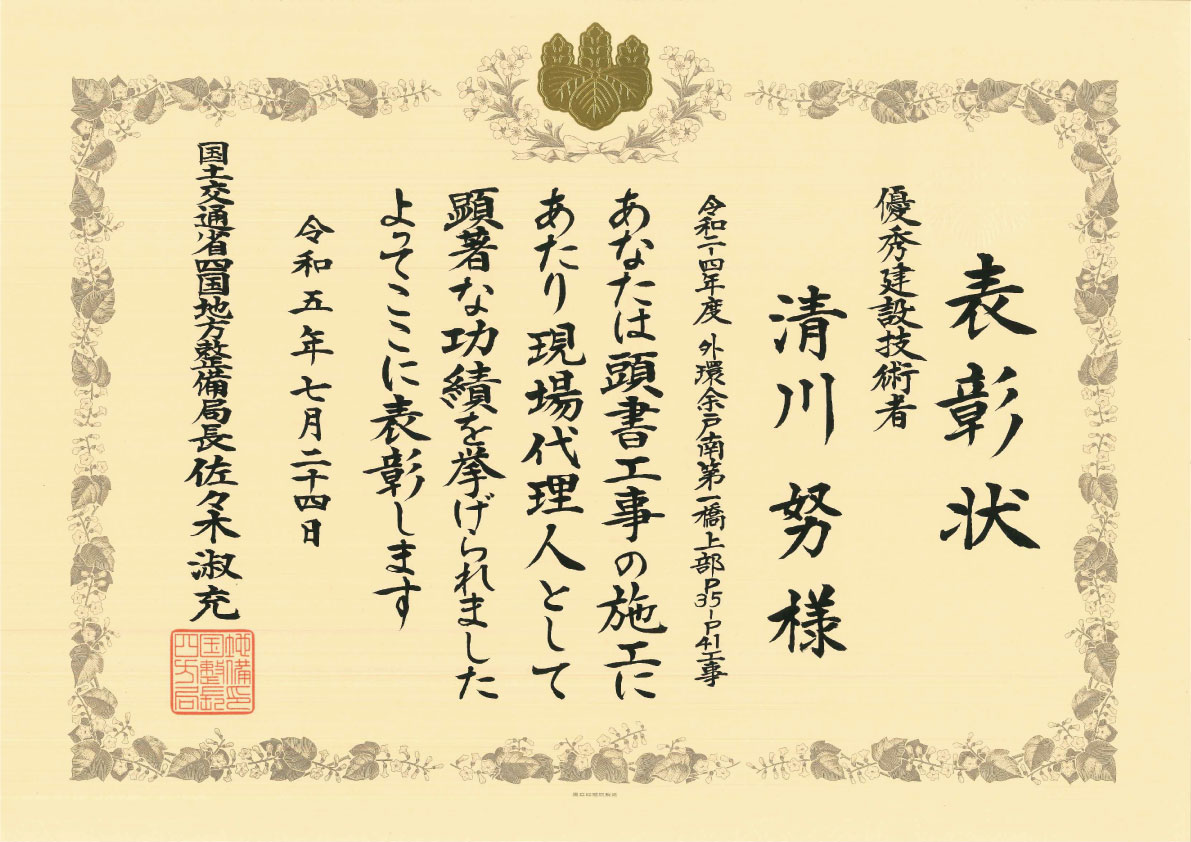 表彰状
優秀建設技術者
清川 努 様
令和二-四年度 外環余戸南第一橋上部P35-P41工事
あなたは頭書工事の施工に
あたり現場代理人として
顕著な功績を挙げられました
よってここに表彰します
令和五年七月二十四日
国土交通省四国地方整備局長 佐々木 淑充